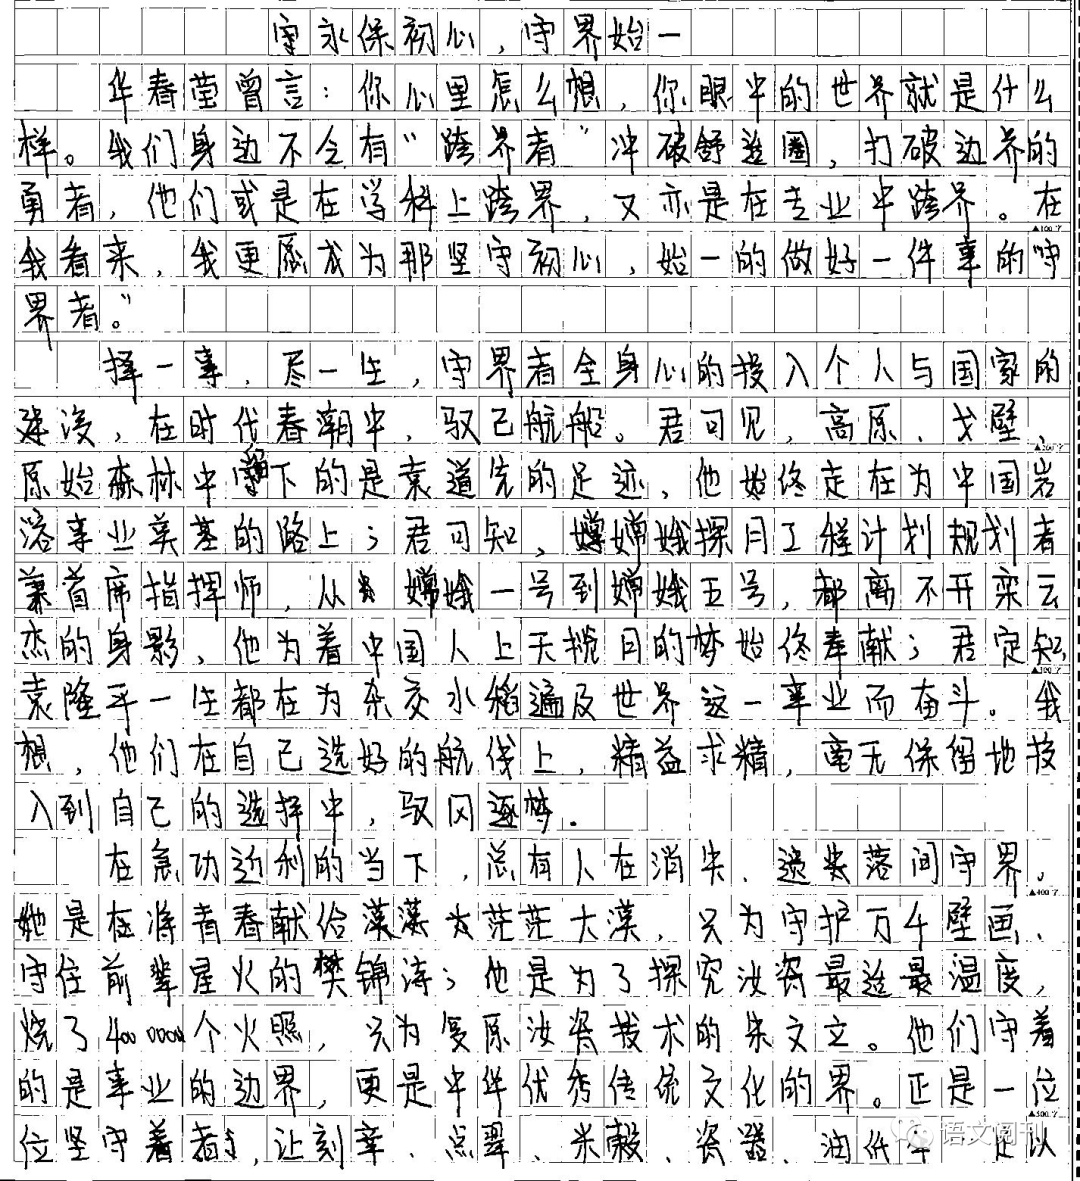 守永保初心，守界始一
华春莹曾言：你心里怎么想，你眼中的世界就是什么
样。我们身边不乏有“跨界者”冲破舒适圈，打破边界的
勇者，他们或是在学科上跨界，又亦是在专业中跨界。在
▲100字
我看来，我更愿成为那坚守初心，始一的做好一件事的“守
界者。”
择一事，尽一生，守界者全身心的投入个人与国家的
建设，在时代春潮中，驭己航船。君可见，高原、戈壁、
▲200字
原始森林中留下的是袁道先的足迹，他始终走在为中国岩
溶事业奠基的路上；君可知，嫦娥探月工程计划规划者
兼首席指挥师，从嫦娥一号到嫦娥五号，都离不开栾云
杰的身影，他为着中国人上天揽月的梦始终奉献；君定知，
▲300字
袁隆平一生都在为杂交水稻遍及世界这一事业而奋斗。我
想，他们在自己选好的航线上，精益求精，毫无保留地投
入到自己的选择中，驭风逐梦。
在急功近利的当下，总有人在消失、遗失落间守界。
▲400字
她是在将青春献给漠漠大茫茫大漠，只为守护万千壁画、
守住前辈星火的樊锦涛；他是为了探究汝瓷最适最温度，
烧了400000个火照，只为复原汝瓷技术的朱文立。他们守着
的是事业的边界，更是中华优秀传统文化的界。正是一位
▲500字
位坚守着者，让刻章、点翠、米糓、瓷器、油纸 是以
语文阅刊